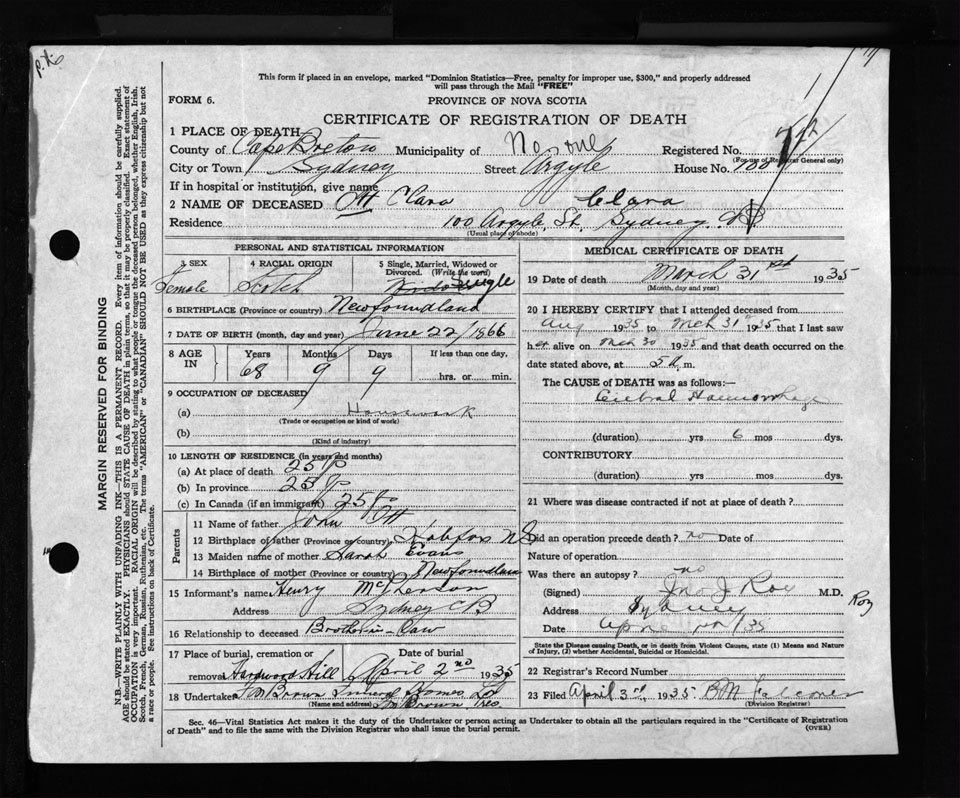 This form if placed in an envelope, marked "Dominion Statistics—Free, penalty for improper use, $300," and properly addressed
will pass through the Mail "FREE"
FORM 6.
PROVINCE OF NOVA SCOTIA
CERTIFICATE OF REGISTRATION OF DEATH
1 PLACE OF DEATH
County of Cape Breton Municipality of Registered No.
(For use of Registrar General only)
City or Town Sydney Street Argyle House No. 100
If in hospital or institution, give name
2 NAME OF DECEASED Ott Clara Clara
Residence 100 Argyle St. Sydney
(Usual place of abode)
PERSONAL AND STATISTICAL INFORMATION
3 SEX 4 RACIAL ORIGIN 5 Single, Married, Widowed or Divorced. (Write the word)
Female Scotch Single
6 BIRTHPLACE (Province or country) Newfoundland
7 DATE OF BIRTH (month, day and year) June 22/1866
8 AGE IN Years Months Days If less than one day,
68 9 9 hrs. or min.
9 OCCUPATION OF DECEASED
(a) Housework
(Trade or occupation or kind of work)
(b)
(Kind of industry)
10 LENGTH OF RESIDENCE (in years and months)
(a) At place of death 25
(b) In province 25
(c) In Canada (if an immigrant) 25
Parents
11 Name of father John Ott
12 Birthplace of father (Province or country) NS
13 Maiden name of mother Sarah Evans
14 Birthplace of mother (Province or country) Newfoundland
15 Informant's name Henry McPherson
Address Sydney CB
16 Relationship to deceased Brother-in-Law
17 Place of burial, cremation or removal Date of burial
Hardwood Hill April 2nd 1935
18 Undertaker Brown Funeral Homes Ltd
(Name and address) Brown Pres
MEDICAL CERTIFICATE OF DEATH
19 Date of death March 31st 1935
(Month, day and year)
20 I HEREBY CERTIFY that I attended deceased from
Aug 1935 to Mch 31 1935 that I last saw
her alive on Mch 30 1935 and that death occurred on the
date stated above, at 5 a. m.
The CAUSE of DEATH was as follows:—
Cerebral Haemorrhage
(duration) yrs 6 mos dys.
CONTRIBUTORY
(duration) yrs mos dys.
21 Where was disease contracted if not at place of death?
Did an operation precede death? no Date of
Nature of operation
Was there an autopsy? no
(Signed) Jno J Roy M.D.
Roy
Address Sydney
Date 35
State the Disease causing Death, or in death from Violent Causes, state (1) Means and
Nature of Injury, (2) whether Accidental, Suicidal or Homicidal.
22 Registrar's Record Number
23 Filed April 3rd 1935 B M Falconer
(Division Registrar)
Sec. 46—Vital Statistics Act makes it the duty of the Undertaker or person acting as Undertaker to obtain all the particulars required in the "Certificate of Registration
of Death" and to file the same with the Division Registrar who shall issue the burial permit.
(OVER)
MARGIN RESERVED FOR BINDING
N.B.—WRITE PLAINLY WITH UNFADING INK—THIS IS A PERMANENT RECORD. Every item of information should be carefully supplied.
AGE should be stated EXACTLY. PHYSICIANS should STATE CAUSE OF DEATH in plain terms, so that it may be properly classified. Exact statement of
OCCUPATION is very important. RACIAL ORIGIN will be described by stating to what people or tongue the deceased person belonged, whether English, Irish,
Scotch, French, German, Russian, Ruthenian, etc. The terms "AMERICAN" or "CANADIAN" SHOULD NOT BE USED as they express citizenship but not
a race or people. See instructions on back of Certificate.